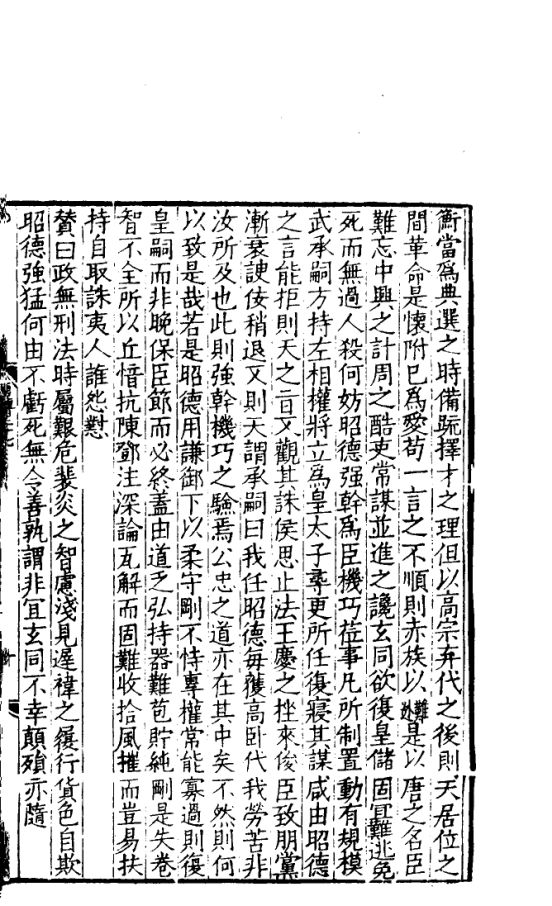 衡當爲典選之時備䟽擇才之理但以高宗弃代之後則天居位之
間革命是懷附己爲愛苟一言之不順則赤族以難逃是以唐之名臣
難忘中興之計周之酷吏常謀並進之讒玄同欲復皇儲固冝難逃免
死而無過人殺何妨昭德强幹爲臣機巧莅事凡所制置動有規模
武承嗣方持左相權將立爲皇太子尋更所任復寢其謀咸由昭德
之言能拒則天之旨又觀其誅侯思止法王慶之挫來俊臣致朋黨
漸衰諛佞稍退又則天謂承嗣曰我任昭德每獲高卧代我勞苦非
汝所及也此則強幹機巧之驗焉公忠之道亦在其中矣不然則何
以致是哉若是昭德用謙御下以柔守剛不恃專權常能寡過則復
皇嗣而非晚保臣節而必終蓋由道乏弘持器難苞貯純剛是失卷
智不全所以丘愔抗陳鄧注深論瓦解而固難收拾風摧而豈易扶
持自取誅夷人誰怨懟
贊曰政無刑法時屬艱危裴炎之智慮淺見遲禕之履行貨色自欺
昭德強猛何由不虧死無令善孰謂非宜玄同不幸顛殞亦隨